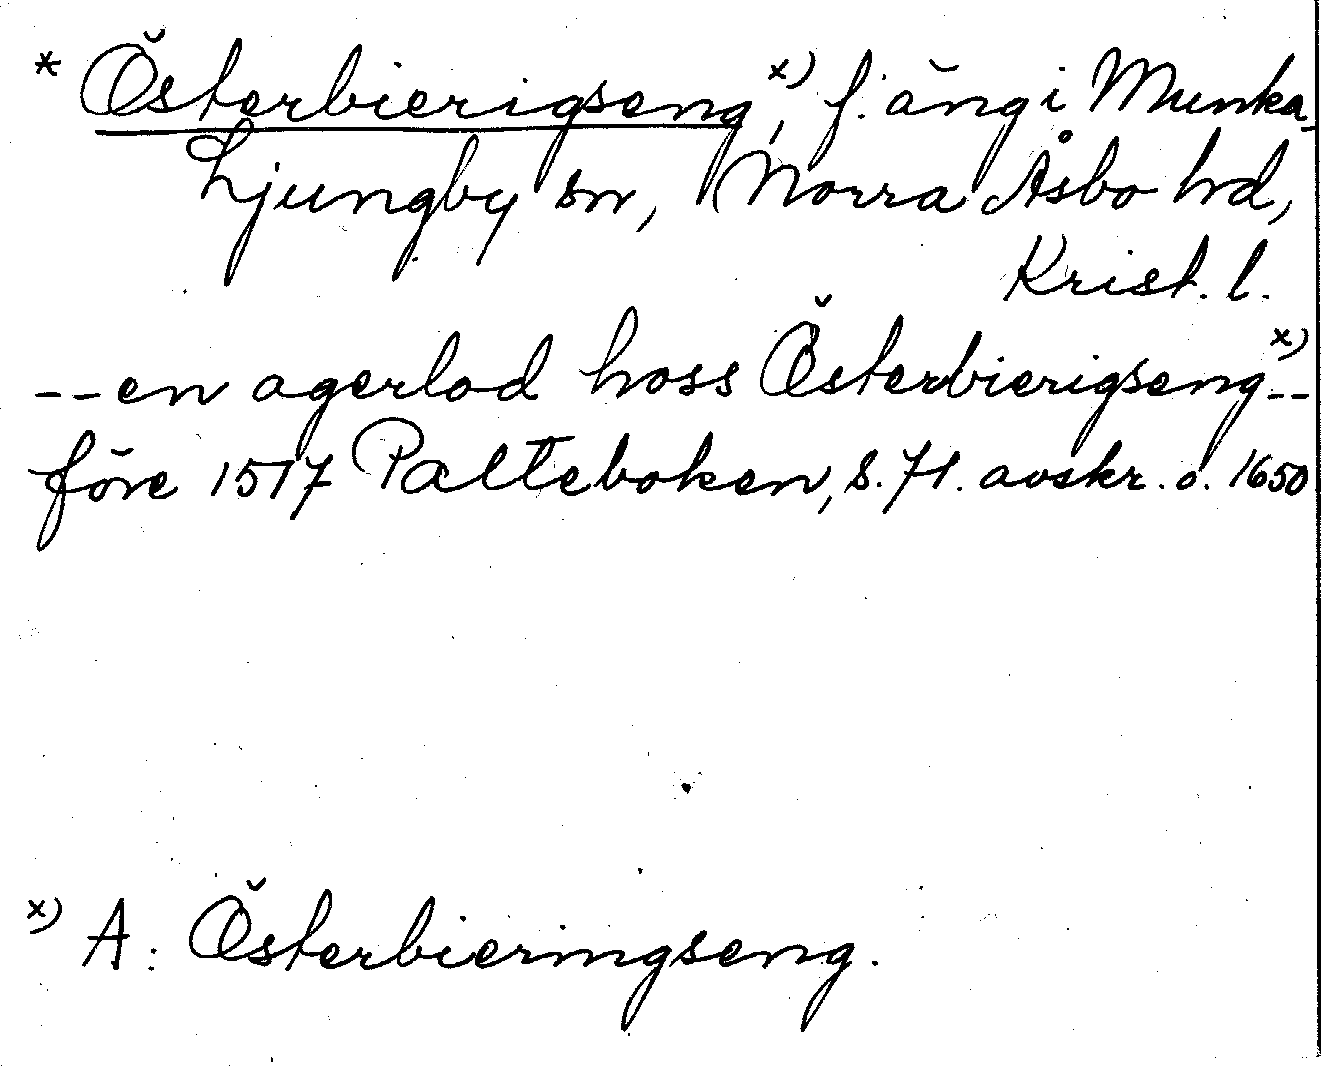 * Österbierigseng x), f. äng i Munka-
Ljungby sn, Norra Åsbo hd,
Krist. l.
-- en agerlod hoss Österbierigseng x) --
före 1517 Palteboken, s. 71. avskr. o. 1650
x) A: Österbieringseng.